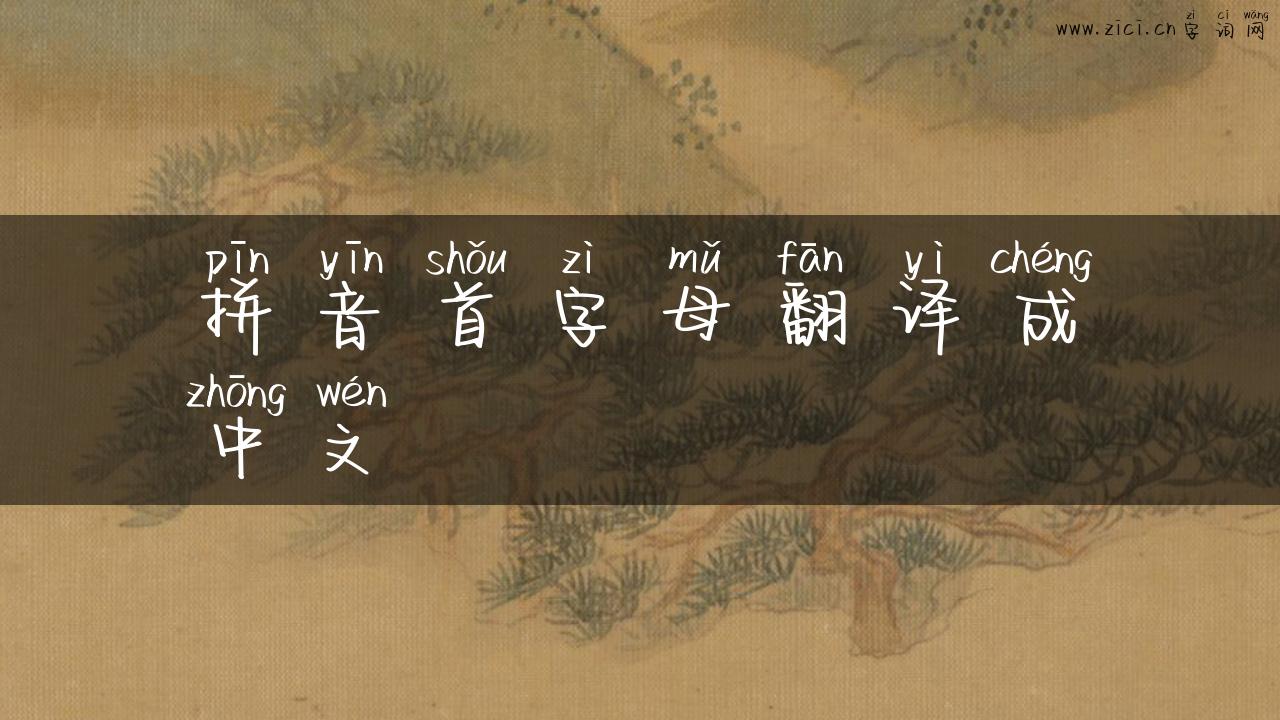 zì cí wǎng
www.zici.cn 字 词 网
pīn yīn shǒu zì mǔ fān yì chéng
拼 音 首 字 母 翻 译 成
zhōng wén
中 文